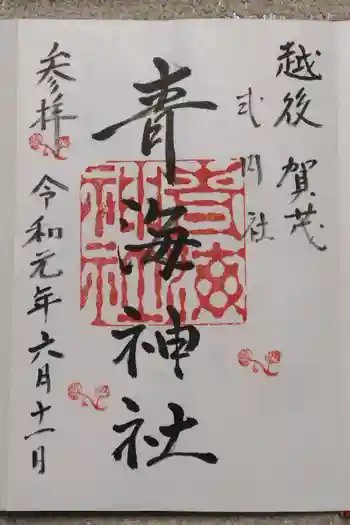 越後 賀茂
式内社
青海神社
青海神社
参拝
令和元年六月十一日